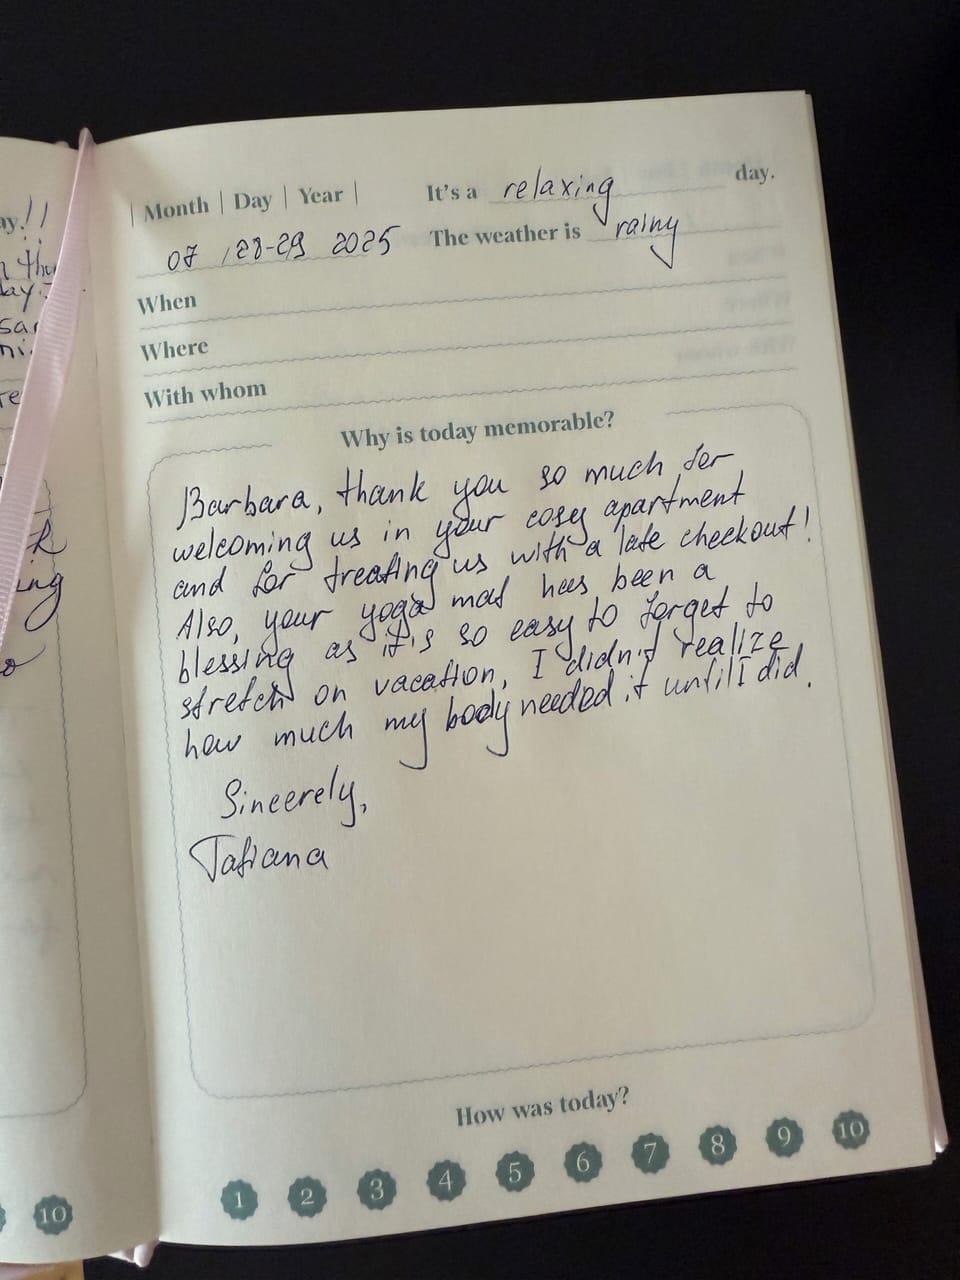 ay.!!
Month | Day | Year |
It's a relaxing day.
07 28-29 2025
The weather is rainy
When
Where
With whom
Why is today memorable?
Barbara, thank you so much for
welcoming us in your cosy apartment
and for treating us with a late checkout!
Also, your yoga mat has been a
blessing as it's so easy to forget to
stretch on vacation, I didn't realize
how much my body needed it until I did.
Sincerely,
Tatiana
How was today?
1 2 3 4 5 6 7 8 9 10
ing
10